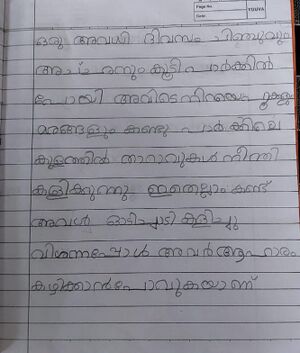 Page No.
Date
YOUVA
ഒരു അവധി ദിവസം ചിഞ്ചുവും
അച്ഛനും കൂടി പാർക്കിൽ
പോയി അവിടെ നിറയെ പൂക്കളും
മരങ്ങളും കണ്ടു പാർക്കിലെ
കുളത്തിൽ താറാവുകൾ നീന്തി
കളിക്കുന്നു ഇതെല്ലാം കണ്ട്
അവൾ ഓടിച്ചാടി കളിച്ചു
വിശന്നപ്പോൾ അവർ ആഹാരം
കഴിക്കാൻ പോവുകയാണ്